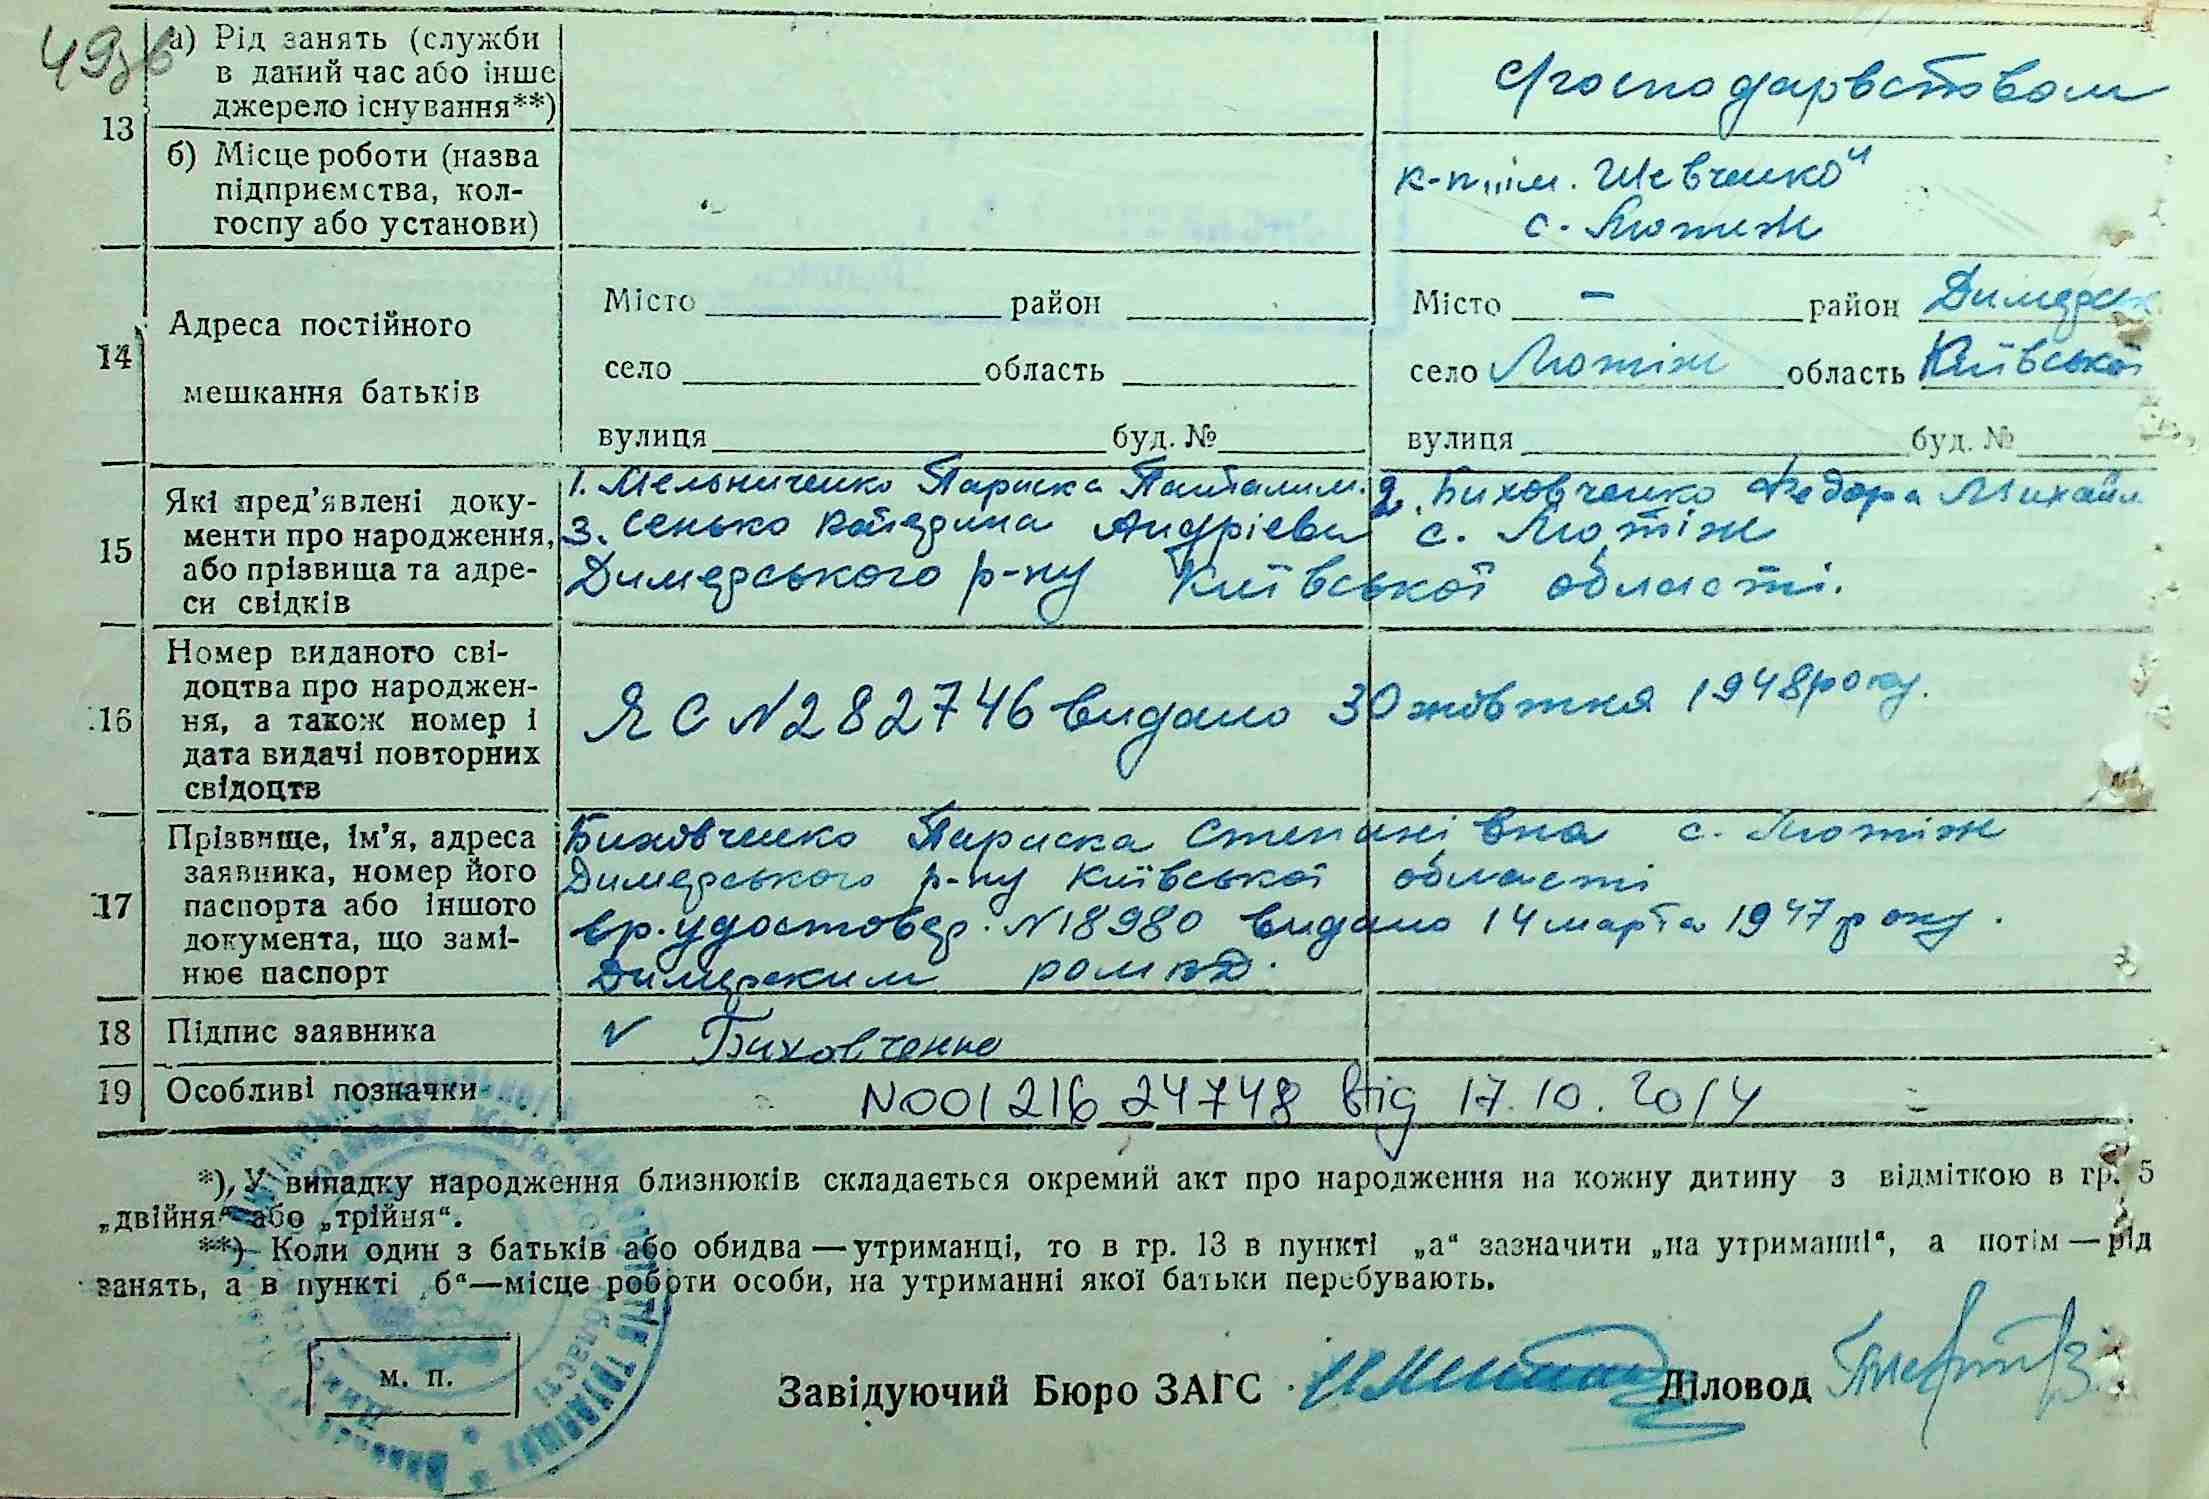 49зв
13
а) Рід занять (служби
в даний час або інше
джерело існування**)
с/господарвством
б) Місце роботи (назва
підприємства, кол-
госпу або установи)
к-п „ім. Шевченко"
с. Лютиж
14
Адреса постійного
мешкання батьків
Місто район
село область
вулиця буд. №
Місто — район Димерськ
село Лютіж область Київської
вулиця буд. №
15
Які пред’явлені доку-
менти про народження,
або прізвища та адре-
си свідків
1. Мельниченко Параска Панталим. 2. Биховченко Федора Михайл
3. Сенько Катерина Андріевн с. Лютіж
Димерського р-ну Київської області.
16
Номер виданого сві-
доцтва про народжен-
ня, а також номер і
дата видачі повторних
свідоцтв
ЯС N282746 видано 30 жовтня 1948 року.
17
Прізвище, ім’я, адреса
заявника, номер його
паспорта або іншого
документа, що замі-
нює паспорт
Биховченко Параска Степанівна с. Лютіж
Димерського р-ну Київської області
вр. удостовер. N18980 видано 14 марта 1947 року.
Димерским
18
Підпис заявника
v Биховченко
19
Особливі позначки
N00121624748 від 17.10.2014
*) У випадку народження близнюків складається окремий акт про народження на кожну дитину з відміткою в гр. 5
„двійня“ або „трійня“.
**) Коли один з батьків або обидва — утриманці, то в гр. 13 в пункті „а“ зазначити „на утриманні“, а потім — рід
занять, а в пункті „б“—місце роботи особи, на утриманні якої батьки перебувають.
м. п.
Завідуючий Бюро ЗАГС
Діловод